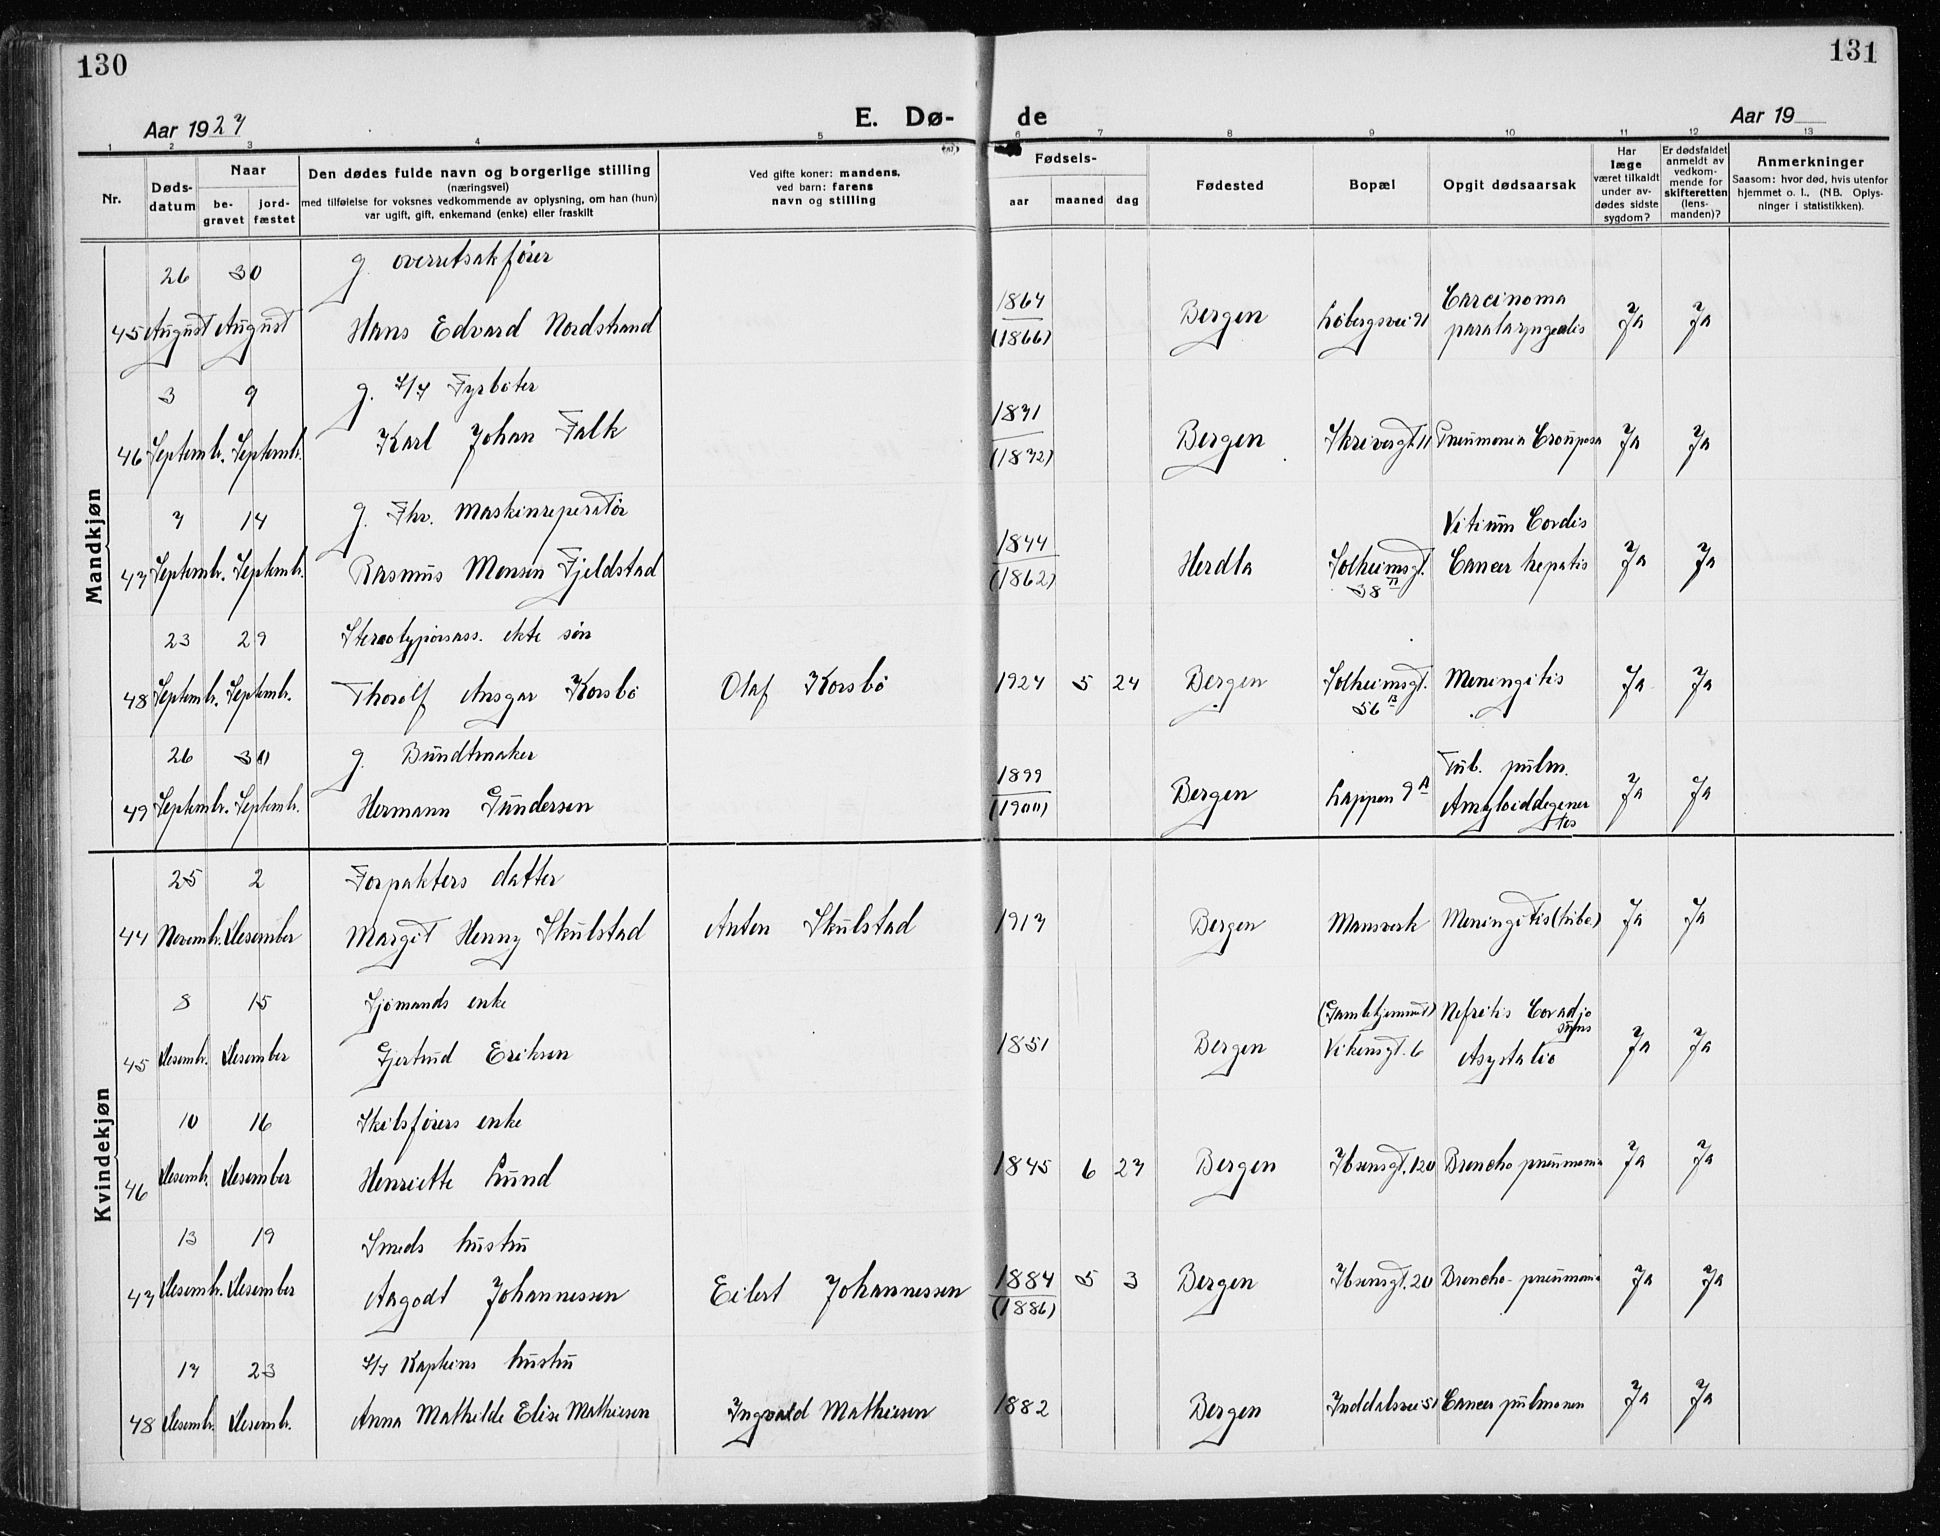 130
131
Aar 1927
E. Dø-
de
Aar 19
1 2 3 4 5 6 7 8 9 10 11 12 13
Nr.
Døds-
datum
Naar
be-
gravet
jord-
fæstet
Den dødes fulde navn og borgerlige stilling
(næringsvei)
med tilføielse for voksnes vedkommende av oplysning, om han (hun)
var ugift, gift, enkemand (enke) eller fraskilt
Ved gifte koner: mandens,
ved barn: farens
navn og stilling
Fødsels-
aar
maaned
dag
Fødested
Bopæl
Opgit dødsaarsak
Har
læge
været tilkaldt
under av-
dødes sidste
sygdom?
Er dødsfaldet
anmeldt av
vedkom-
mende for
skifteretten
(lens-
manden)?
Anmerkninger
Saasom: hvor død, hvis utenfor
hjemmet o. l.. (NB. Oplys-
ninger i statistikken).
Mandkjøn
26 30 g. overretsakfører
45 August August Hans Edvard Nordstrand 1864 (1866) Bergen Løbergsvei 91 Carcinoma paralaryngealis Ja Ja
3 9 g. Fyrbøter
46 Septemb. Septemb. Karl Johan Falk 1871 (1872) Bergen Skrivergt. 11 Pneumonia Crouposa Ja Ja
7 14 g. Fhv. Maskinreperatør
47 Septemb. Septemb. Rasmus Monsen Fjeldstad 1844 (1862) Herdla Solheimsgt. 38 Vitium Cordis Cancer hepatis Ja Ja
23 29 Stereotypørsass. ekte søn
48 Septemb. Septemb. Thorolf Ansgar Korsbø Olaf Korsbø 1924 5 24 Bergen Solheimsgt. 56 B Meningitis Ja Ja
26 30 g. Bundtmaker
49 Septemb. Septemb. Hermann Gundersen 1899 (1900) Bergen Lappen 9 A Tub. pulm. Amyloiddegener Ja Ja
Kvindekjøn
25 2 Forpakters datter
44 Novemb. Desember Margit Henny Skulstad Anton Skulstad 1913 Bergen Mansverk Meningitis (tube.) Ja Ja
8 15 Sjømands enke
45 Desemb. Desember Gjertrud Eriksen 1851 Bergen (Gamlehjemmet) Vikensgt. 6 Nefritis Asystolie Ja Ja
10 16 Skibsførers enke
46 Desemb. Desember Henriette Lund 1845 6 27 Bergen Ibsensgt. 120 Broncho pneumonia Ja Ja
13 19 Smeds hustru
47 Desemb. Desember Aagodt Johannessen Eilert Johannessen 1884 (1886) 5 3 Bergen Ibsensgt. 20 Broncho-pneumonia Ja Ja
17 23 Kapteins hustru
48 Desemb. Desemb. Anna Mathilde Elise Mathiesen Ingvald Mathiesen 1882 Bergen Inddalsvei 51 Cancer pulmonen Ja Ja